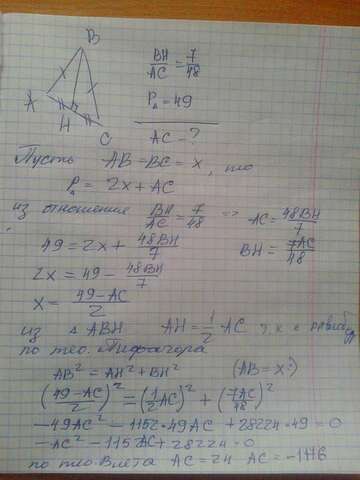 B
A
H
C
BH/AC = 7/48
P△ = 49
AC - ?
Пусть AB = BC = x, то
P△ = 2x + AC
из отношения BH/AC = 7/48 => AC = 48BH/7
49 = 2x + 48BH/7 BH = 7AC/48
2x = 49 - 48BH/7
x = 49-AC/2
из △ ABH AH = 1/2 AC т.к. равнобед
по тео. Пифагора
AB² = AH² + BH² (AB = x)
(49-AC/2)² = (1/2 AC)² + (7AC/48)²
-49AC² - 1152·49AC + 28224·49 = 0
-AC² - 1152AC + 28224 = 0
по тео. Виета AC = 24 AC = -1176